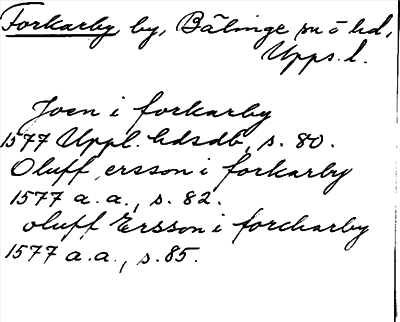 Forkarby by, Bälinge sn o hd,
Upps. l.
Joen i forkarby
1577 Uppl. hdsdb, s. 80.
Oluff ersson i forkarby
1577 a. a., s. 82.
oluff Ersson i forckarby
1577 a. a., s. 85.